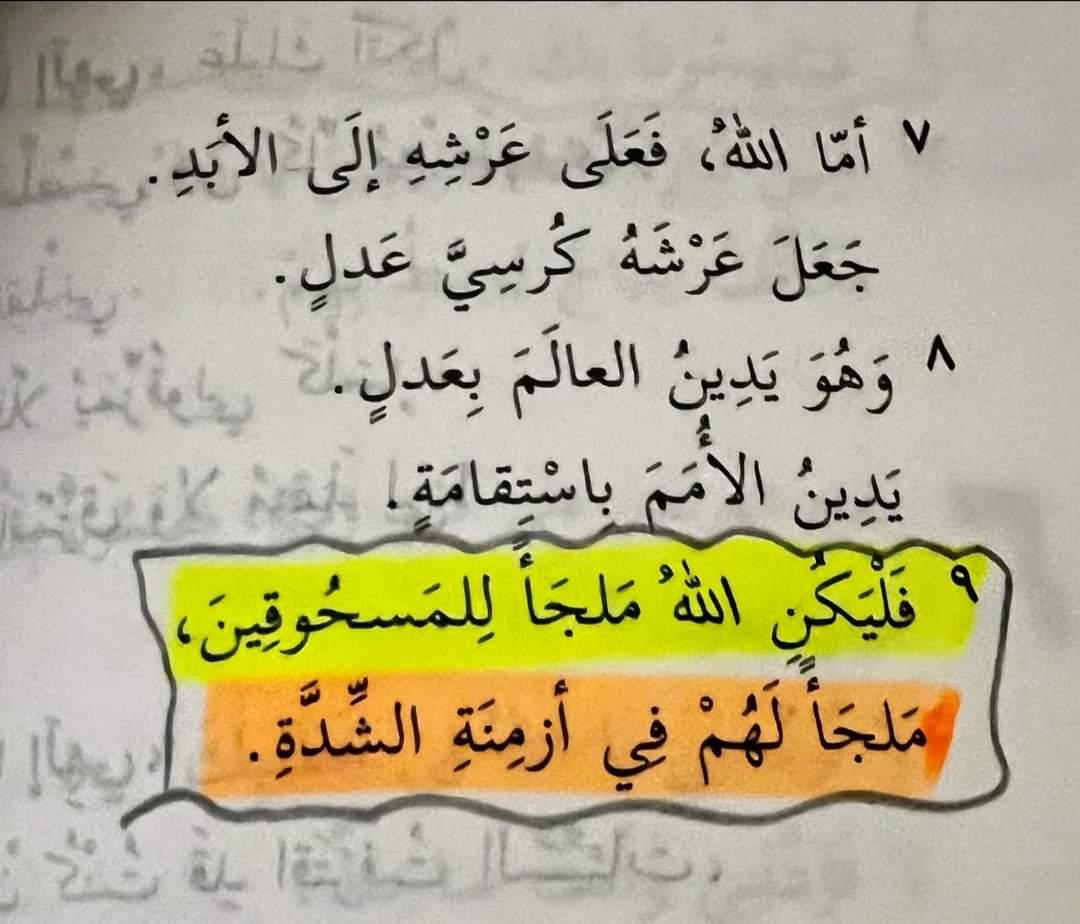 ٧ أمّا اللهُ، فَعَلَى عَرْشِهِ إلَى الأبَدِ.
جَعَلَ عَرْشَهُ كُرسِيَّ عَدلٍ.
٨ وَهُوَ يَدِينُ العالَمَ بِعَدلٍ.
يَدِينُ الأُمَمَ بِاسْتِقامَةٍ.
٩ فَلْيَكُنِ اللهُ مَلجَأً لِلمَسحُوقِينَ،
مَلجَأً لَهُمْ فِي أزمِنَةِ الشِّدَّةِ.